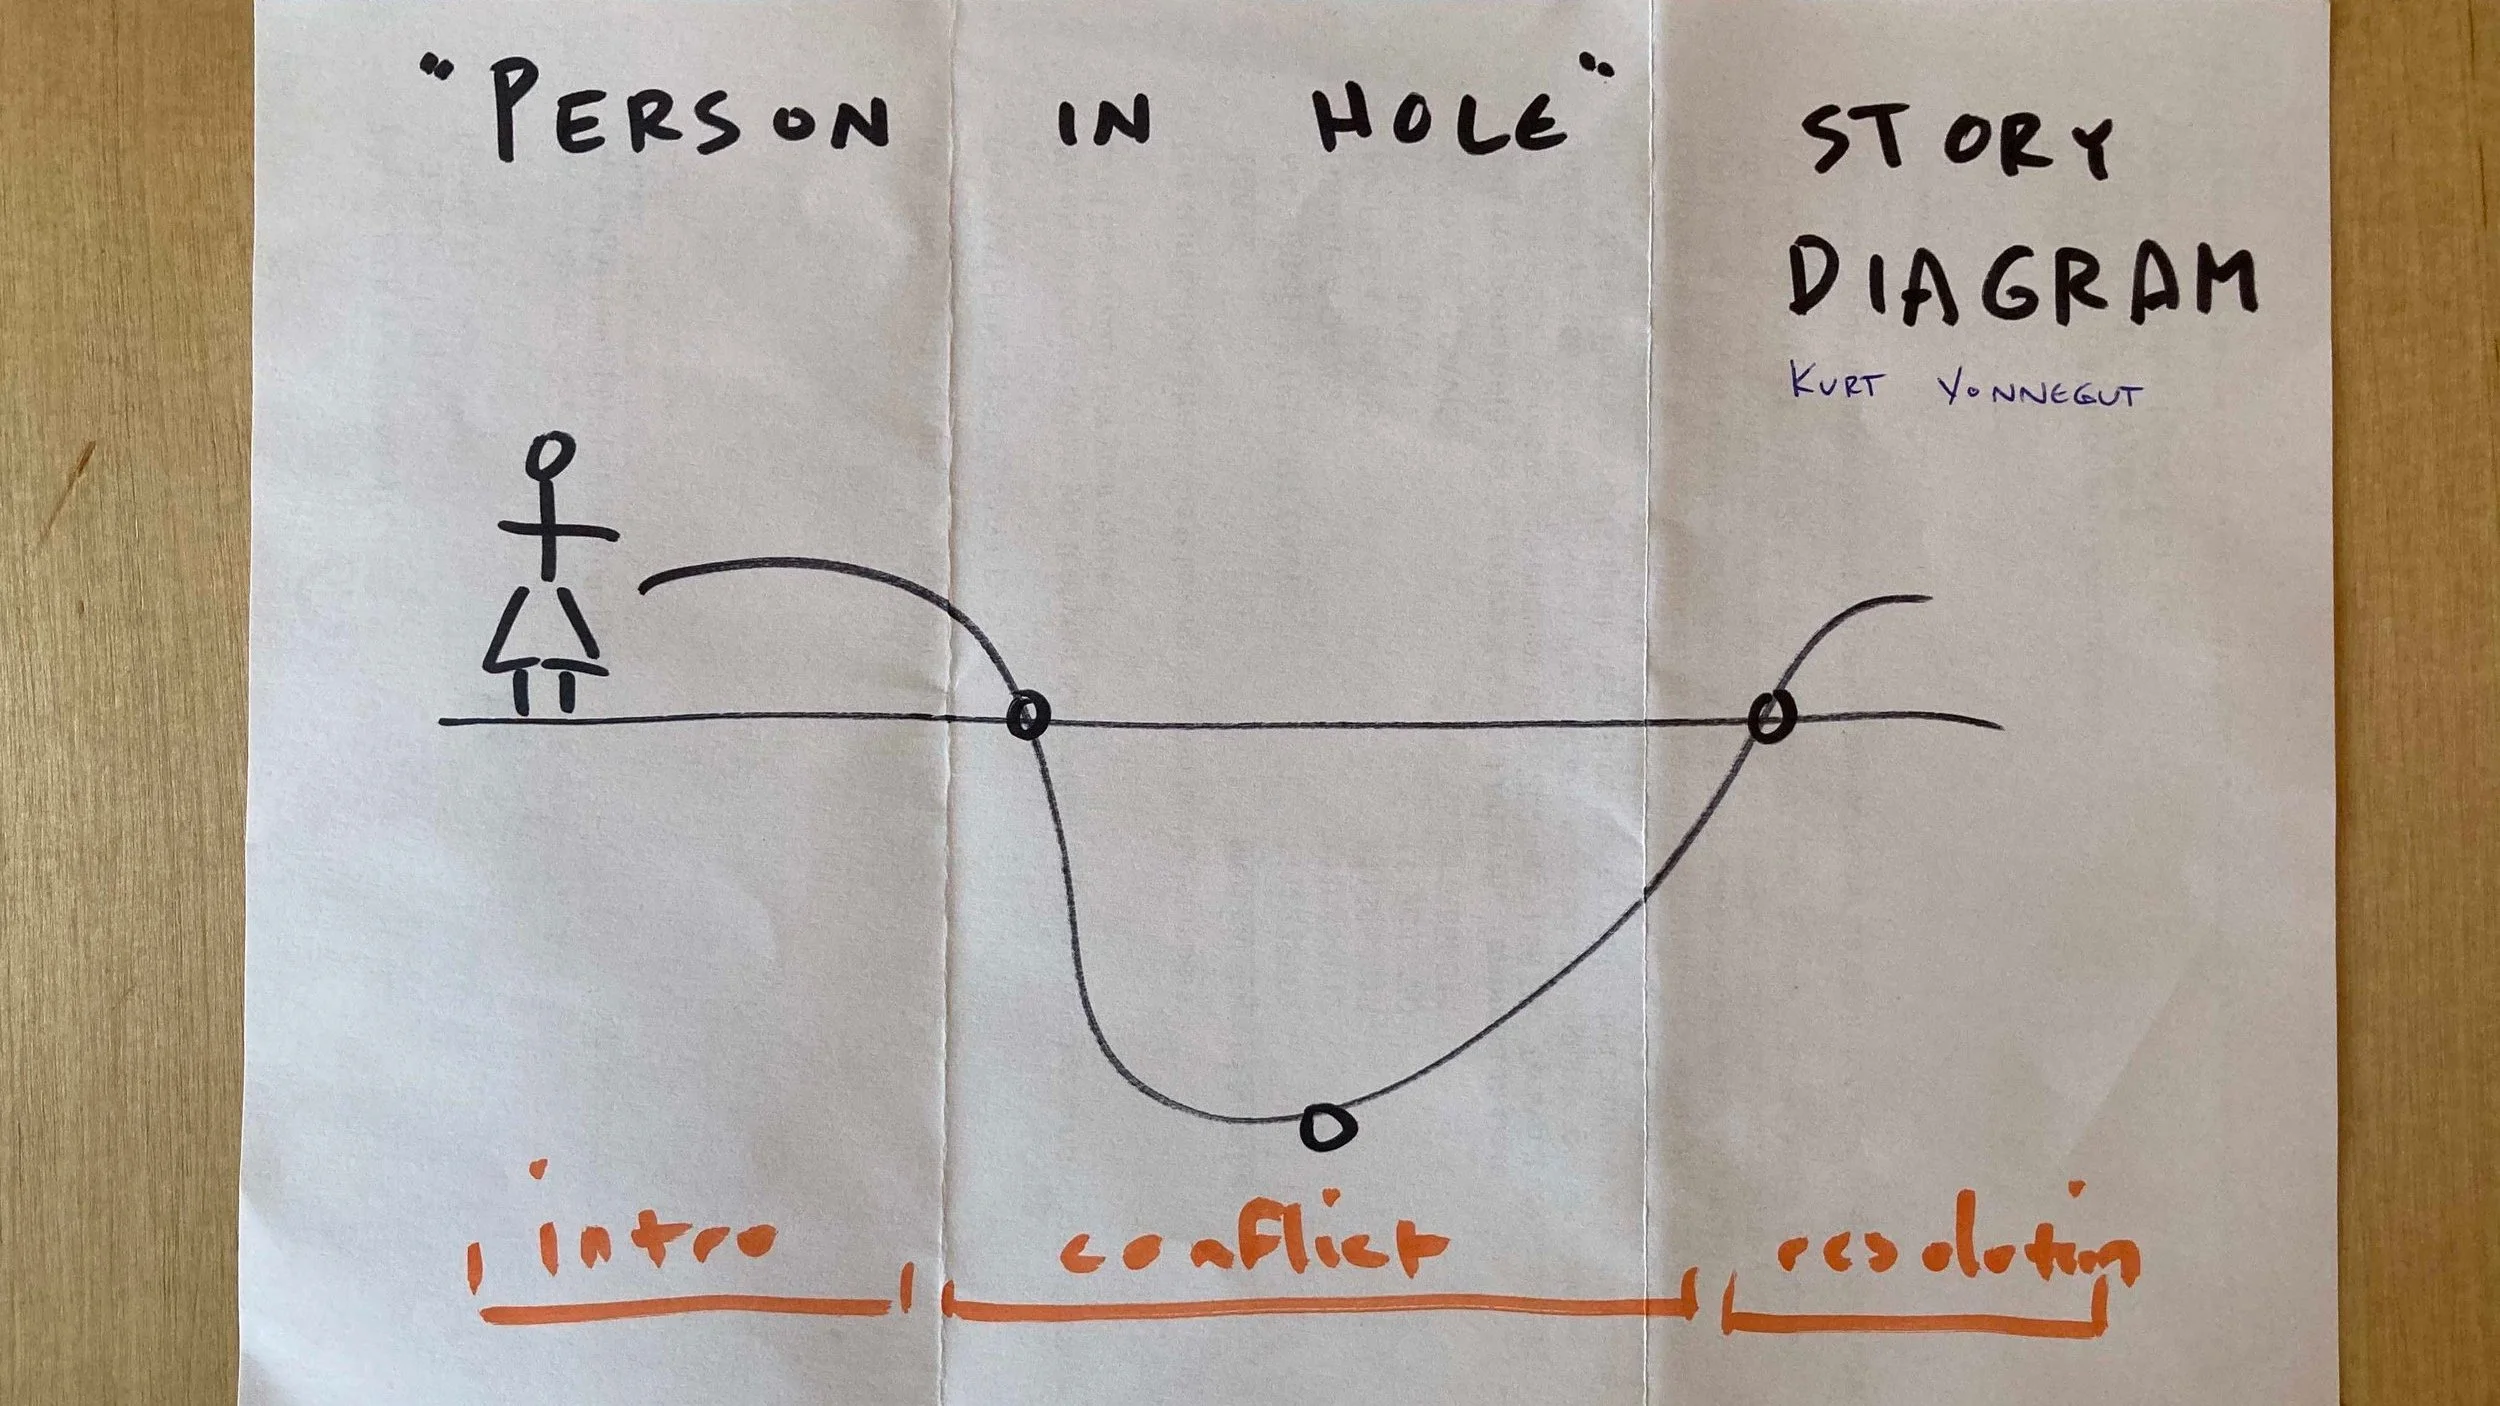 "PERSON IN HOLE" STORY
DIAGRAM
KURT VONNEGUT
intro conflict resolution